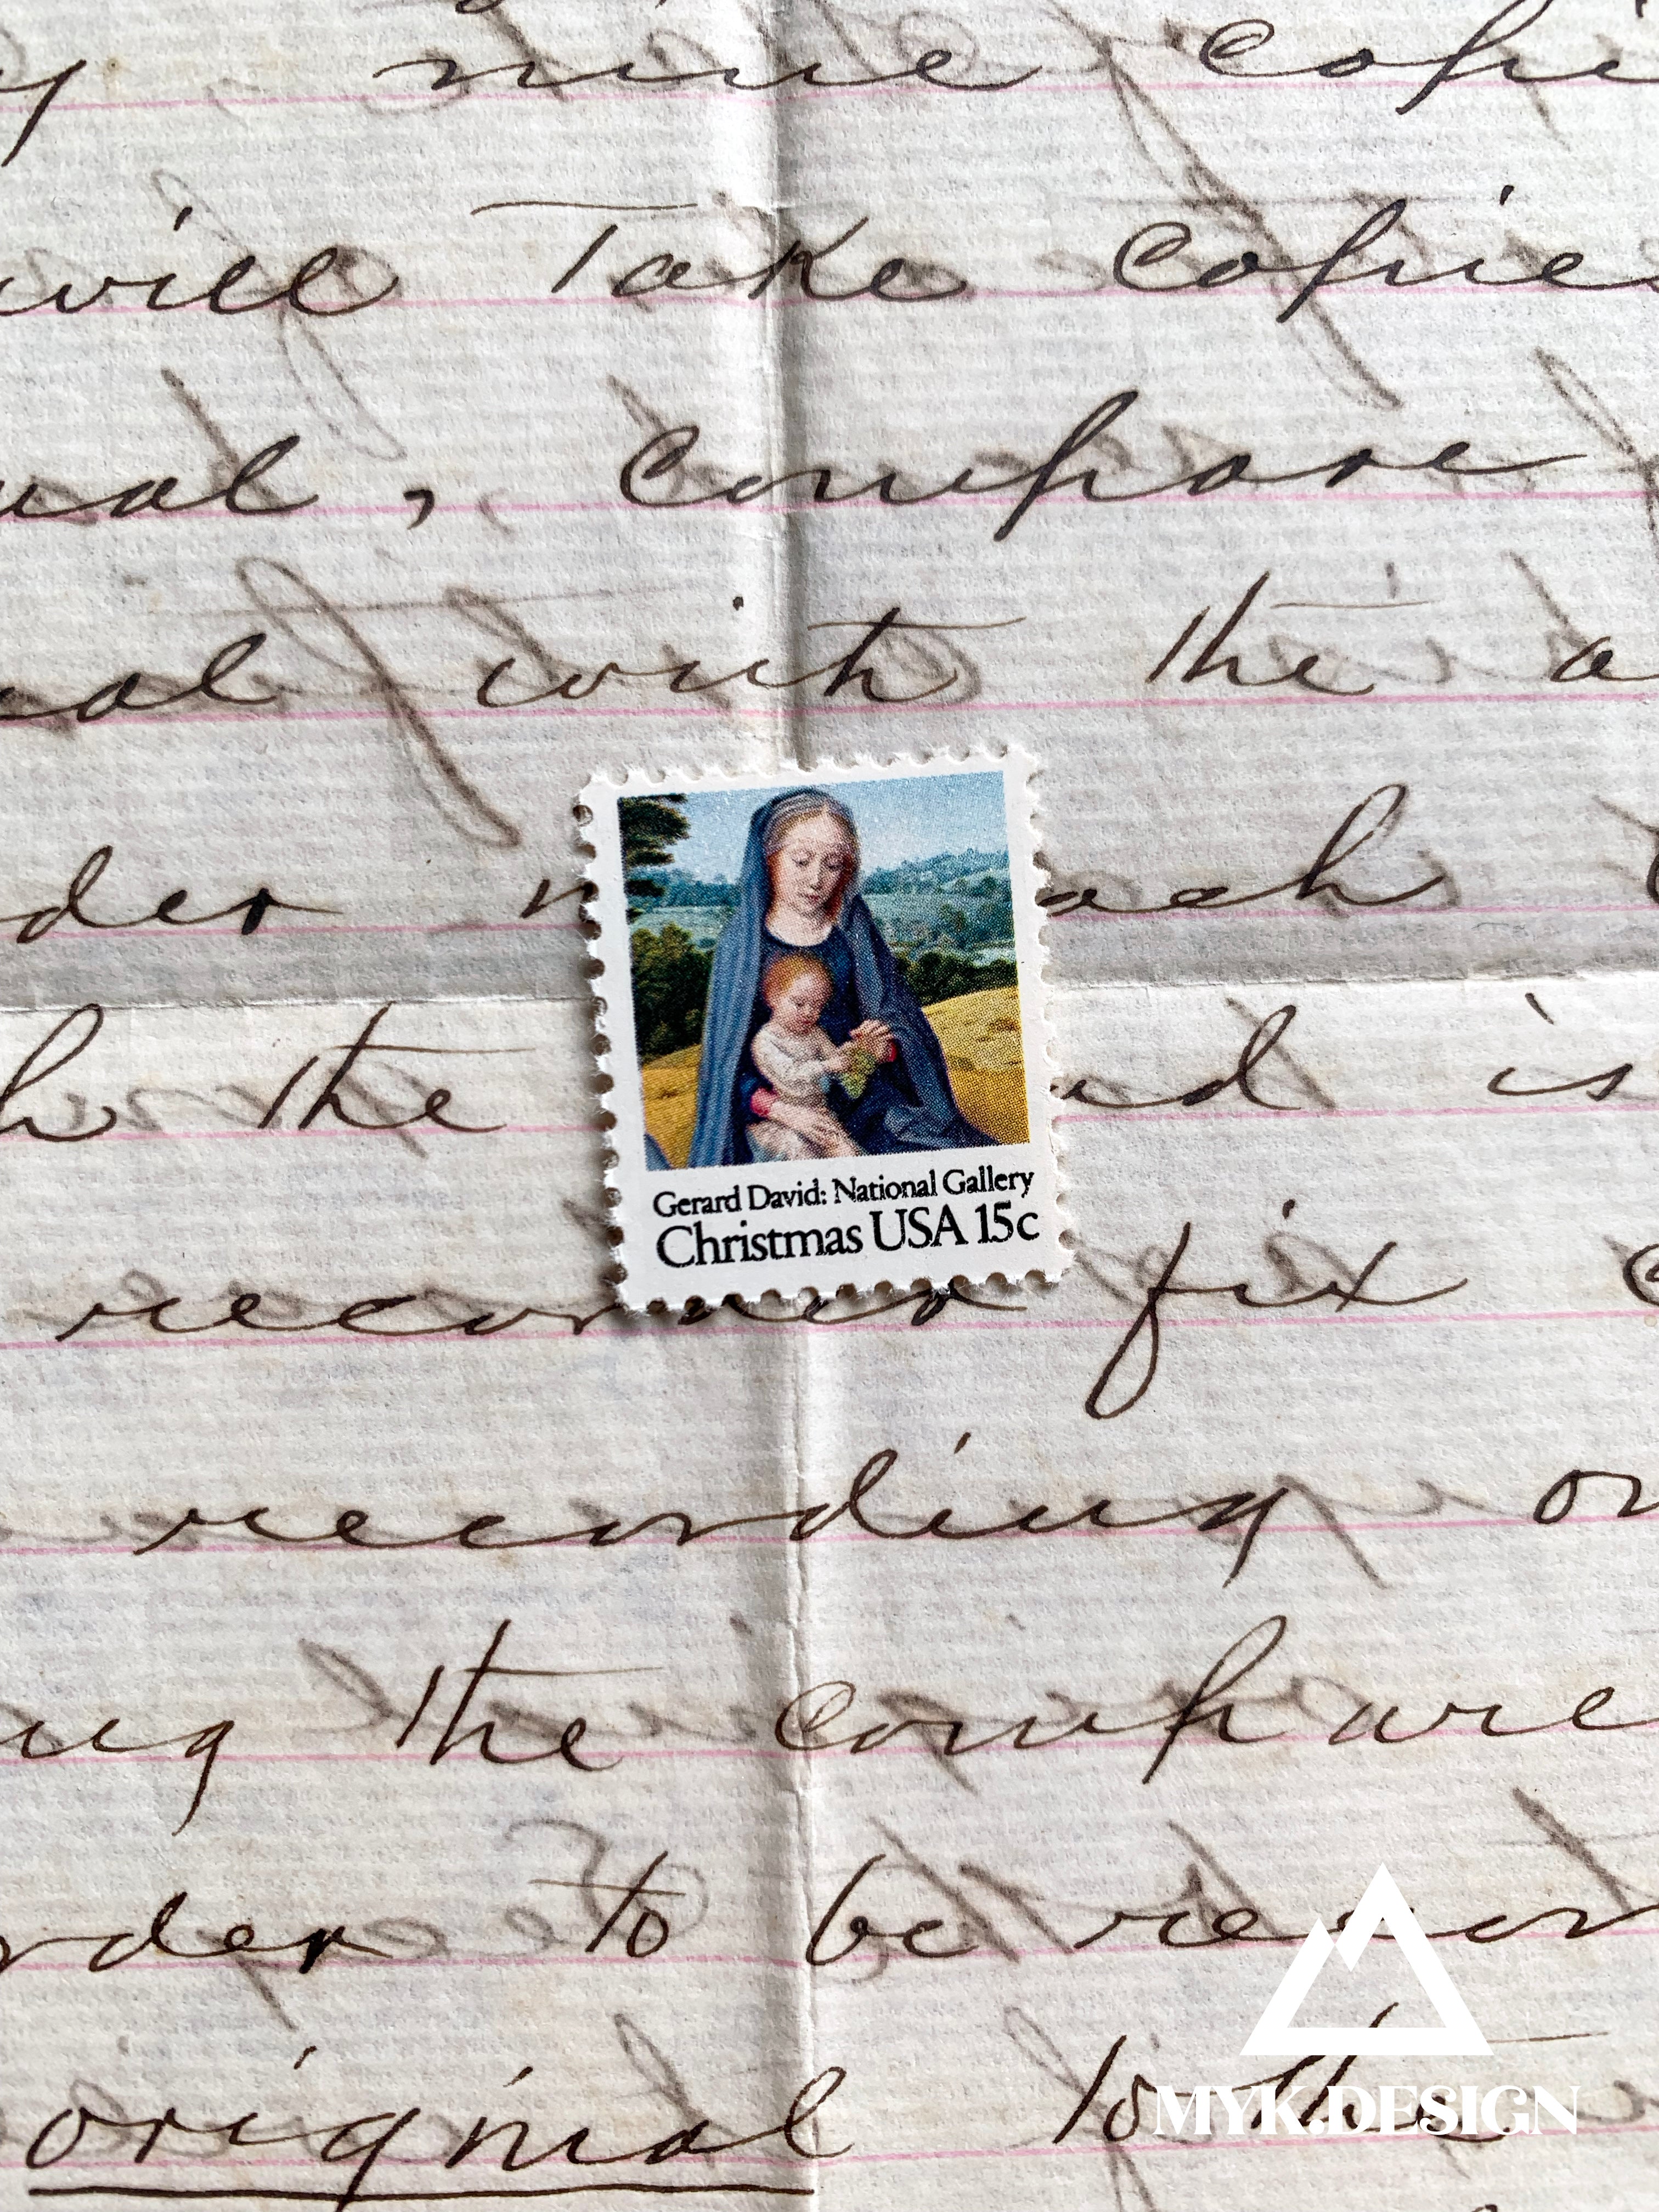 y nine copi
will Take copies
ual, compare
ual with the a
der n each
h the ud is
recorner fix
recording or
ing the compare
rder to be recor
original to the
Gerard David: National Gallery
Christmas USA 15c
MYK.DESIGN